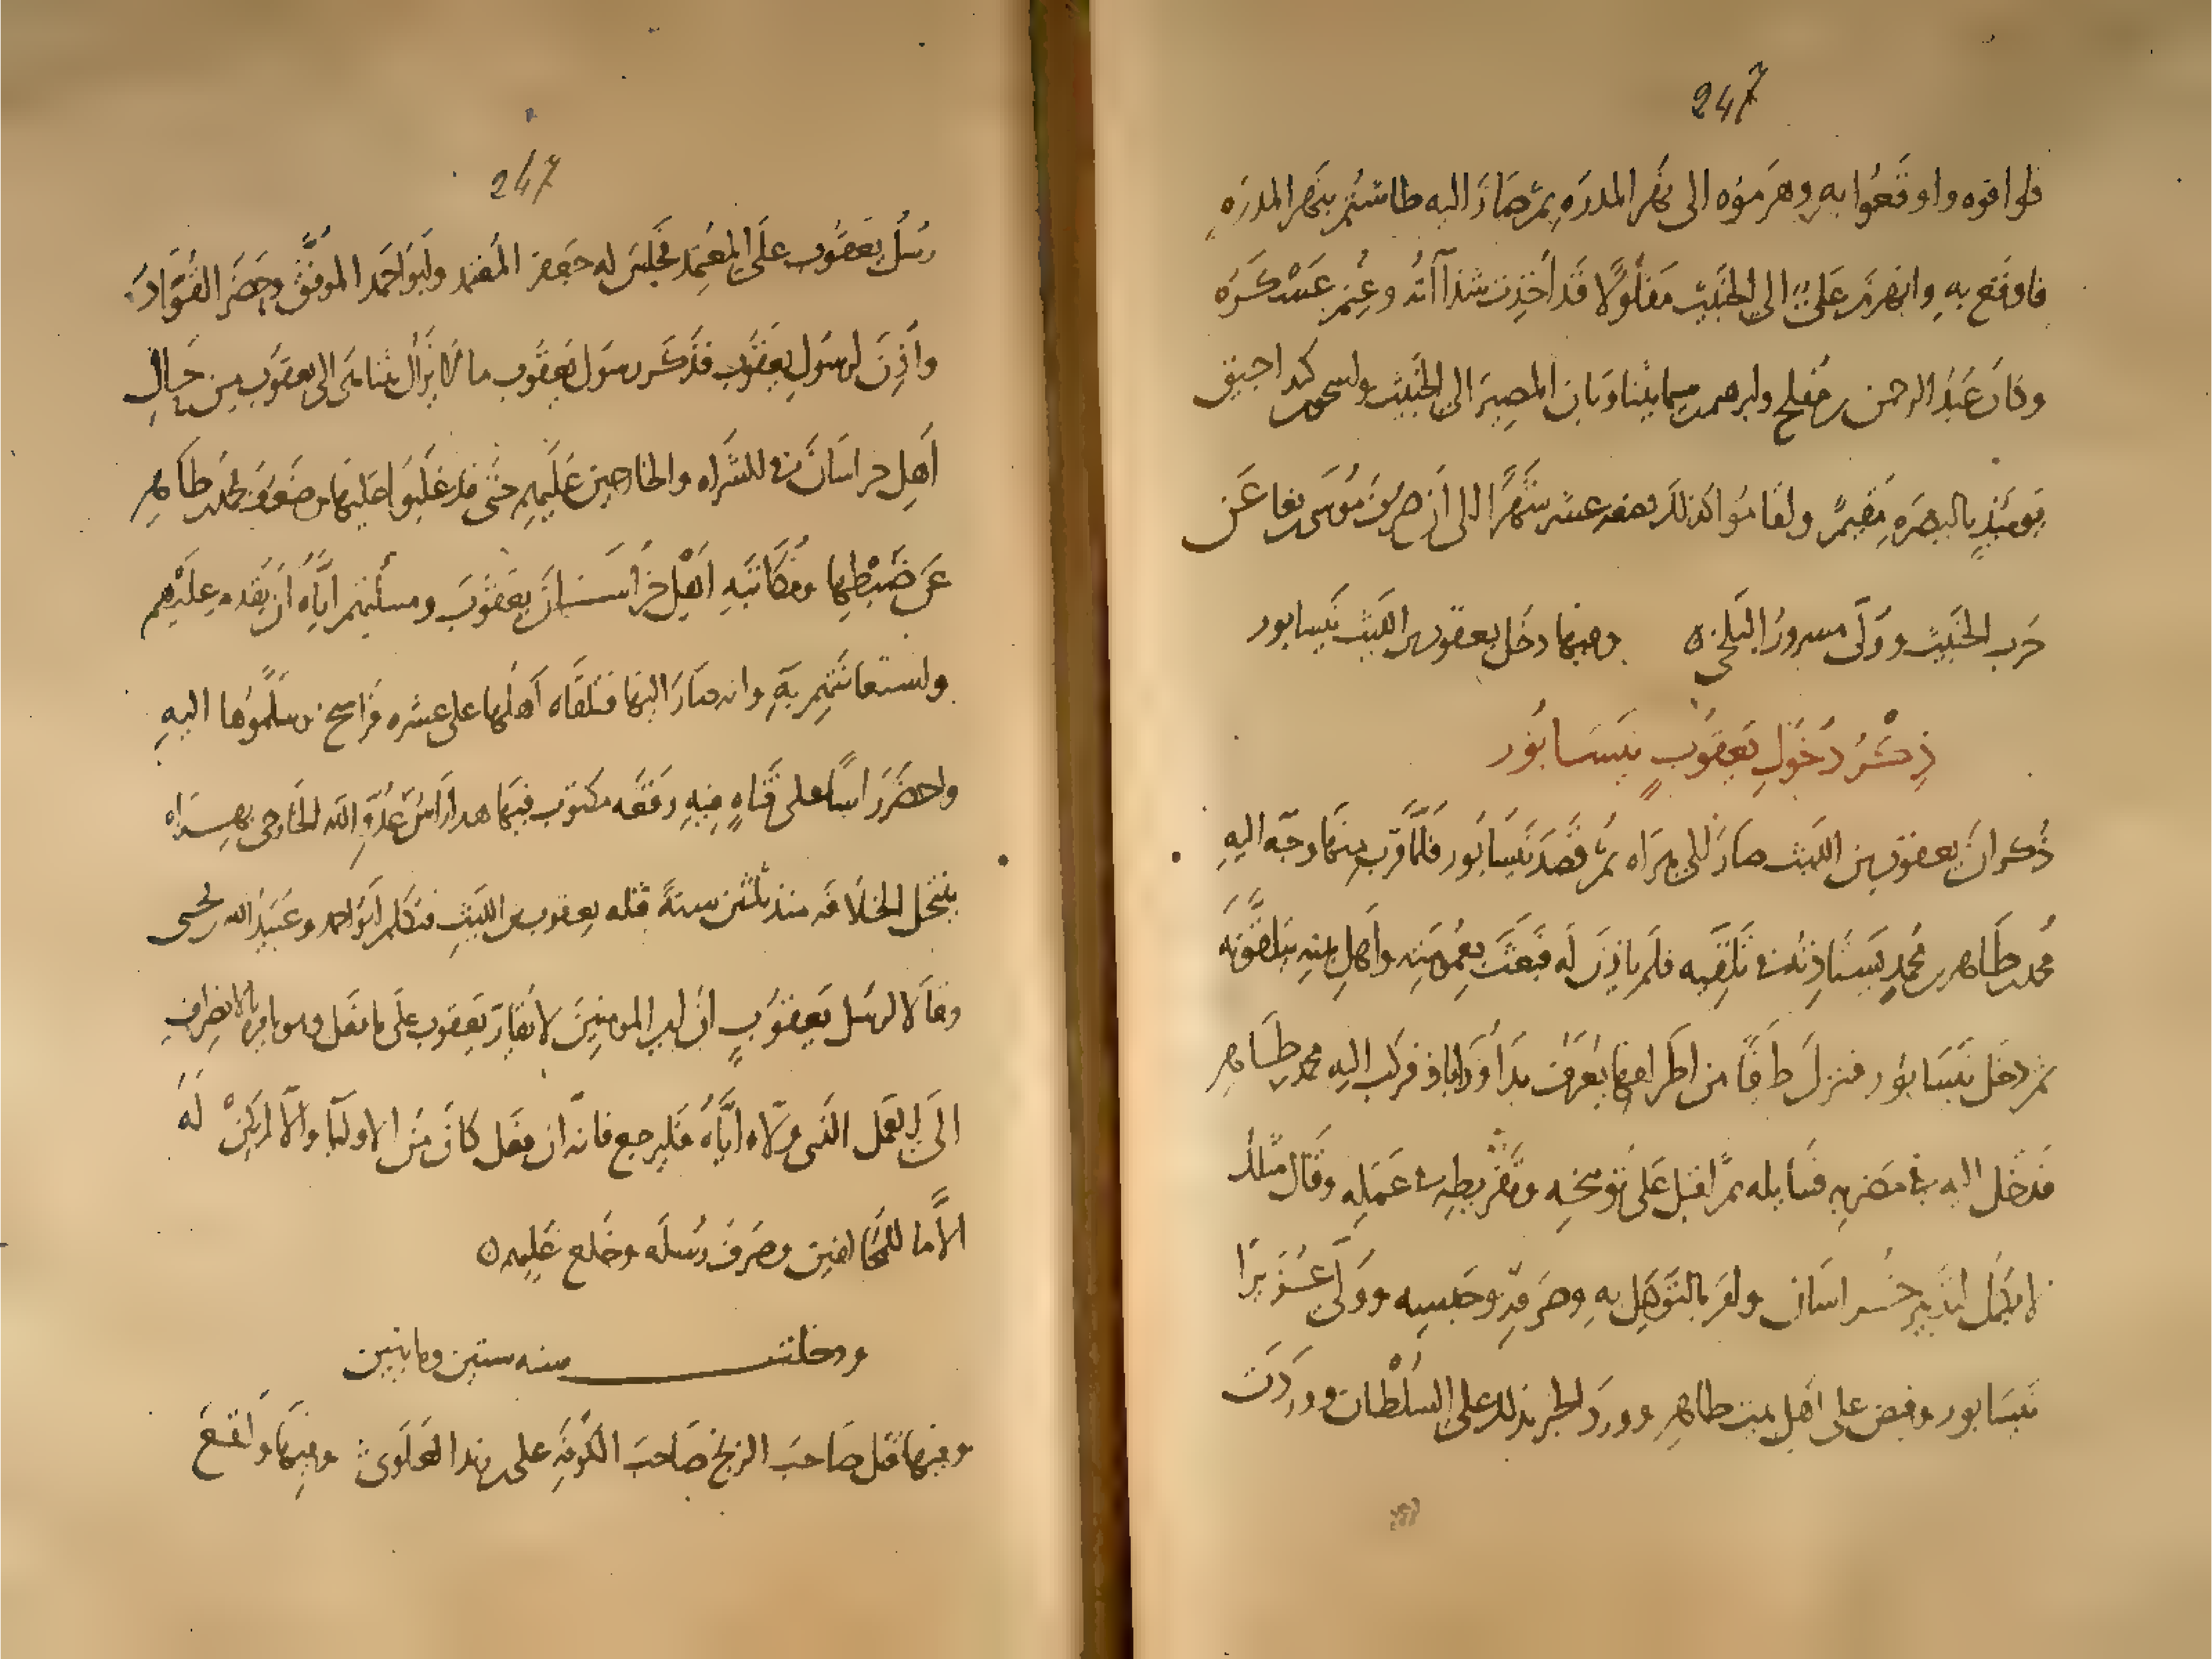 247
فوافوه واوقَعُوا بهِ وهزموُه الى نهر المدرَه ثم صَارَ اليه طاشتمُر بنَهر المدرَه
فاوقَع بهِ وانهزمَ عَلىّ الى الخَبيث مَفلُولًا قَد أخِذت شذاآتُه وغُنِمَ عَسْكَرُه
وكانَ عَبدُ الرحمن بن مُفلح وابرهيم بن سيما يتناوَبان المصِيرَ الى الخَبيث واسحق بن كنداجيق
يَومَئذٍ بالبصَرهِ مُقيمٌ واقَامُوا كذلك بضعه عشر شَهرًا الى أن صُرِفَ مُوسَى بن بغا عَن
حَرب الخَبيث ووَلّى مسرورُ البَلخىُّ ه وفيهَا دخَل يعقوب بن الليث نَيسابور
ذِكْرُ دُخُولِ يَعقُوبٍ نَيسَابُور
ذُكر انّ يعقوب بن الليث صَارَ الى هَرَاه ثُمَّ قَصَدَ نَيسَابُور فَلَمّا قرُبَ مِنهَا وجّه اليهِ
محمد بن طَاهر بن محمدٍ يَستَاذِنُه فى تَلَقِّيه فلم ياذَن لَه فَبعَثَ بعُمُومَتِه واَهلِ بيتِهِ يَتلقَّونَه
ثم دخَل نَيسَابوُر فنزلَ طرفًا من اطرافها يُعرَفُ بدَاوُدَاباذ فركبَ اليه محمد بن طَاهرِ
فدَخَل اليه فى مَضرِبهِ فسَايله ثمّ اقبَل عَلى تَوبيخِه وتَفريطِهِ فى عَمَلِه وقَال مثلُك
لا يَصلُح لتَدبيرِ خُراسَان وامَر بالتَوَكُّل بهِ وصَرفِهِ وحَبسِه ووَلّى عُزَيرًا
نَيسَابور وقبض على اَهلِ بيت طاهرِ ووردَ الخبر بذلك على السُلْطان ووردَت
247
رسُلُ يَعقوُب عَلَى المعُتمِد فجَلسَ له جَعفَر بن المُعتمد وابَو احَمد الموفّقُ وحَضَر القُوّادُ
واُذِنَ لرسُولِ يَعقُوب فذَكَر رسُول يَعقُوب ما كَانَ يزَال يتنَامَى الى يعقوب من حَالِ
اَهلِ خراسَان وانّ الشُراه والمخالفين عَليَهم حتّى قد غَلَبوُا عَليَها من ضَعفِ محمد بن طاهرِ
عَن ضَبْطِها ومُكَاتَبهِ اَهْلِ خراسَان يَعقُوبَ ومسئلتهم اِيّاه اَن يَقدمِ عَليَهم
واستغاثَتهِم بهِ وانه صَارَ اليهَا فتلقّاه اَهلُها على عشره فراسخ وسلَّموُها اليهِ
واحضَرَ رَاسًا على قَناهٍ فيهِ رقعَه مكتوب فيهَا هذا رَاسُ عَدُوِّ الله الخارجى بهَراه
ينتحل الخلافَه منذ ثلثين سنهً قتله يعقوب بن الليثِ فتكلم اَبوُ احمد وعُبَيدُ الله بن يحيى
وقَالا لرسُل يَعقُوبٍ انّ امير المومنِينَ لا يُقَارّ يعقوب على ما فعَل وهو يامره بالانصِرافِ
الَى العَمَل الذى وَلّاه اِيّاه فَليرجع فانّه ان فعَل كان منَ الاوليآ والّا لم يَكنْ لَهُ
الّا ما للمُخَالفين وصَرفَ رُسلَه وخَلع عَليهم ه
ودخلت سنه ستين ومايتين
وفيها قَتل صَاحبَ الزنج صَاحبَ الكوُفهِ على بن زيد العَلَوى وفيَها واَقَعَ